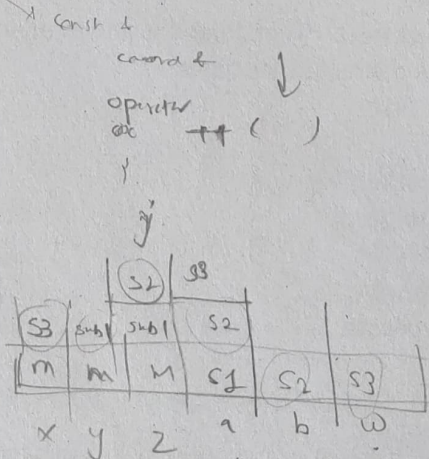 const &
operator
++ ( )
y
S2 S3
S3 sub1 sub1 S2
m m M S1 S2 S3
x y z a b w